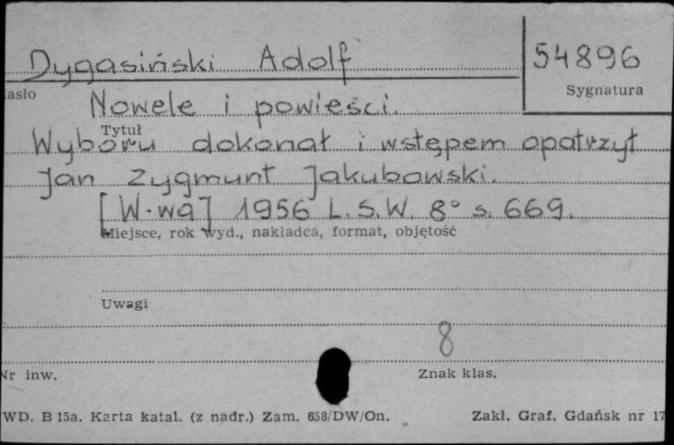 Dygasiński Adolf
54896
asło
Sygnatura
Nowele i powieści.
Tytuł
Wyboru dokonał i wstępem opatrzył
Jan Zygmunt Jakubowski.
[W-wa] 1956 L.S.W. 8° s. 669.
Miejsce, rok wyd., nakładca, format, objętość
Uwagi
8
Nr inw.
Znak klas.
WD. B 15a. Karta katal. (z nadr.) Zam. 658/DW/On.
Zakł. Graf. Gdańsk nr 17